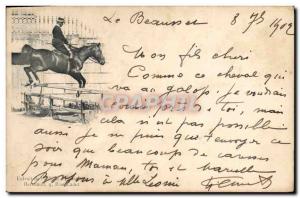 Le Beausset 8 7bre 1902
Mon fils chéri
Comme ce cheval qui
va au galop, je voudrais
toi, mais
cela n'est pas possible
aussi je ne puis que t'envoyer ce
soir que beaucoup de caresses
pour Maman, toi et
Bonjour à Mlle Léonie